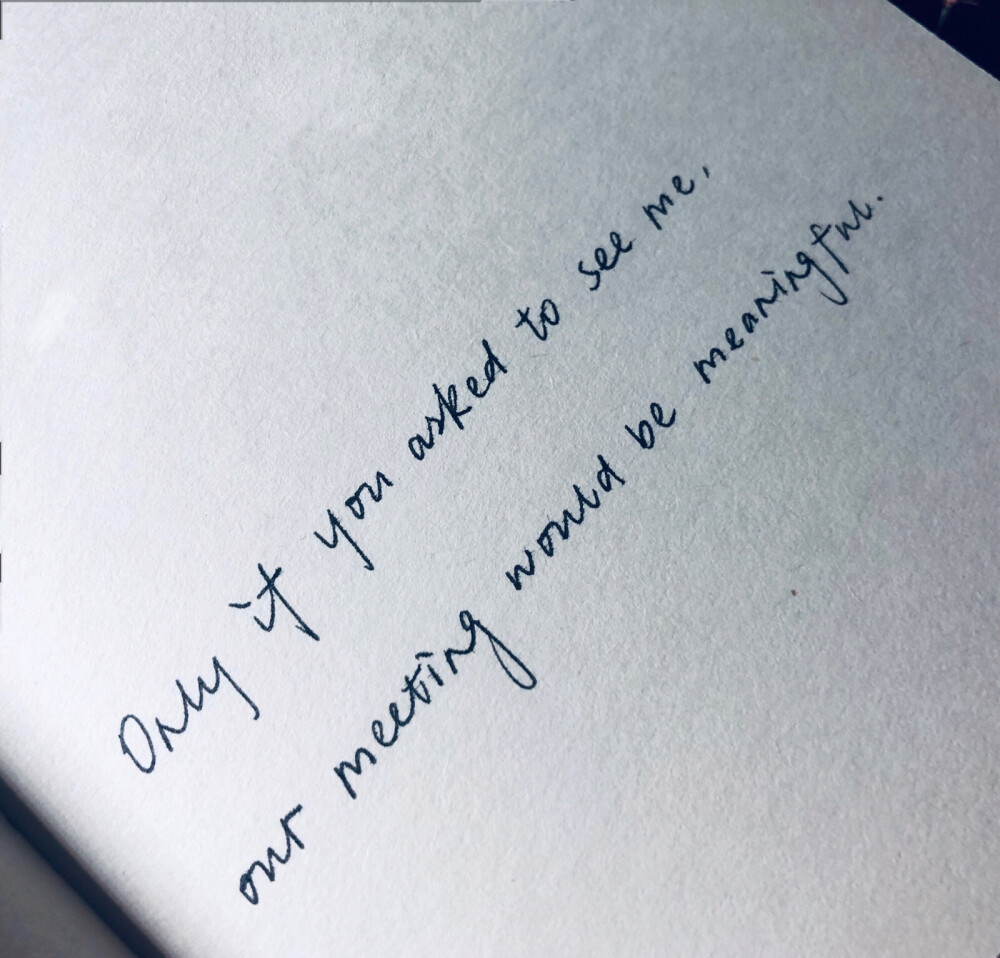 Only if you asked to see me,
our meeting would be meaningful.